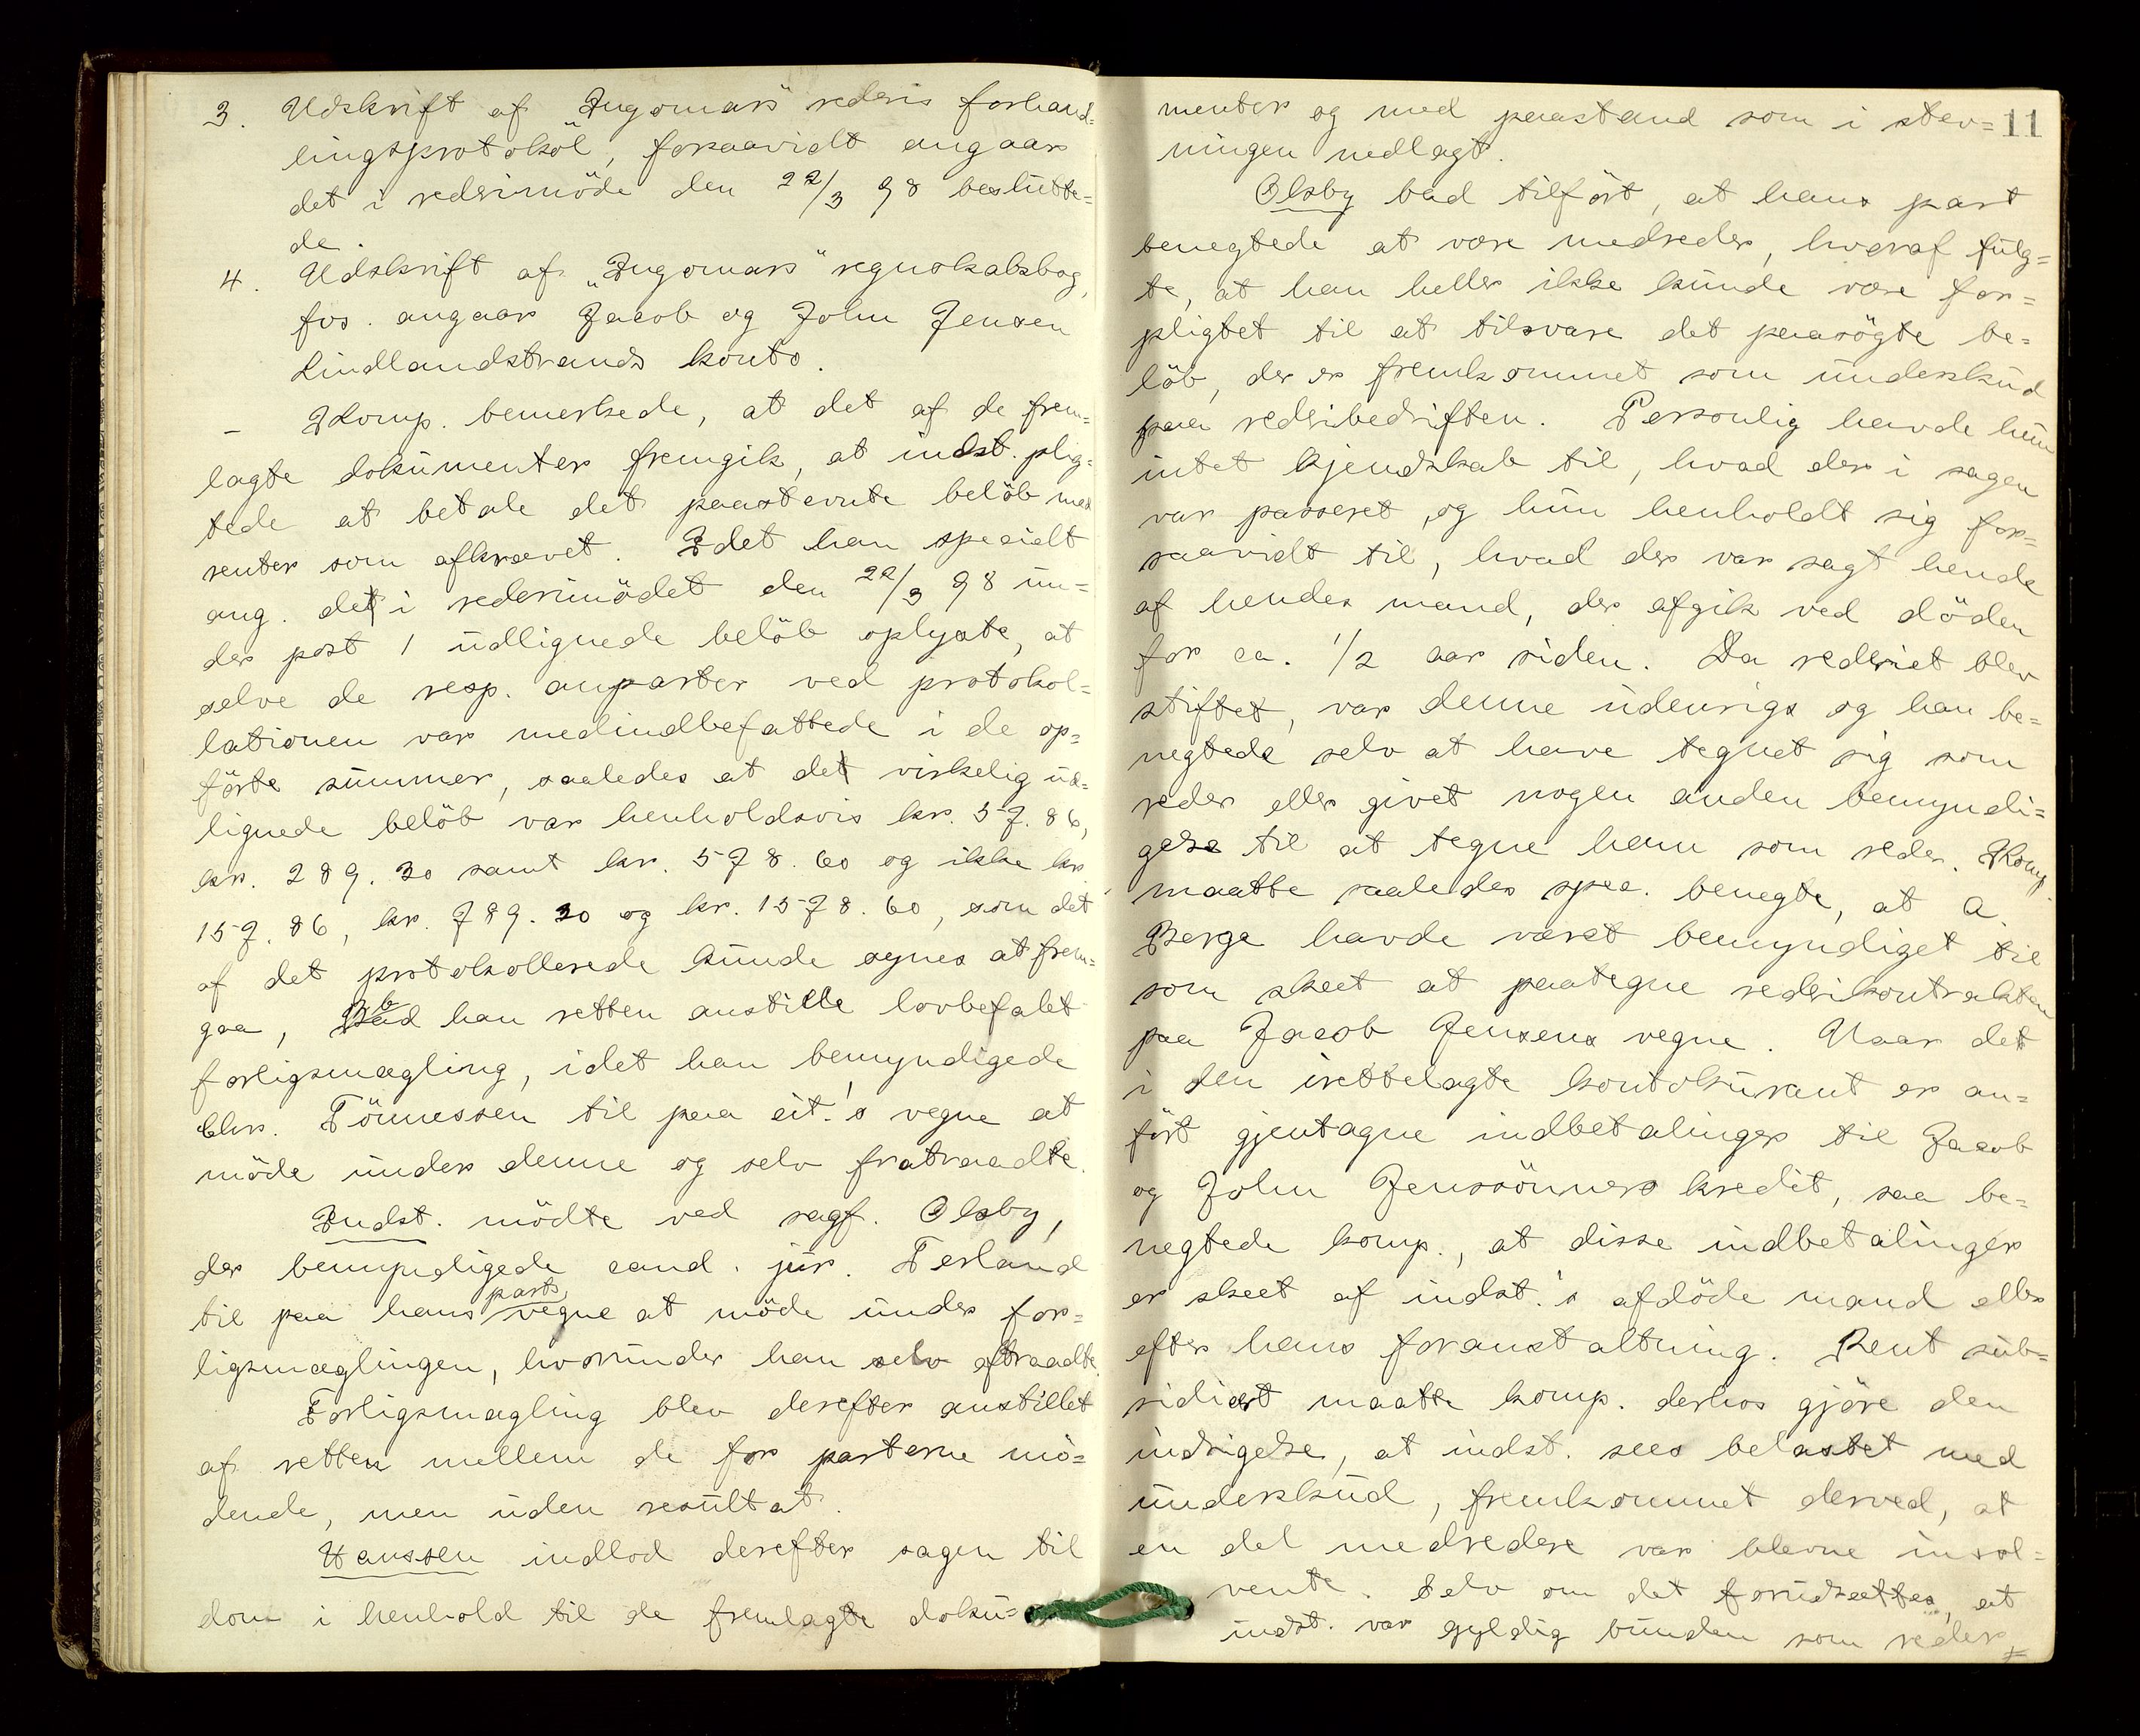 3. Udskrift af "Ingomars" rederis forhand=
lingsprotokol, forsaavidt angaar
det i rederimöde den 22/3 98 beslutte=
de.
4. Udskrift af "Ingomars" regnskabsbog,
fvs. angaar Jacob og John Jensen
Lindlandstrands konto.
- Komp. bemerkede, at det af de frem=
lagte dokumenter fremgik, at indst. plig=
tede at betale det paastevnte belöb med
renter som afkrævet. Idet han specielt
ang. det i rederimödet den 22/3 98 un=
der post 1 udlignede belöb oplyste, at
selve de resp. anparter ved protokol=
lationen var medindbefattede i de op=
förte summer, saaledes at det virkelig ud=
lignede belöb var henholdsvis kr. 57.86,
kr. 289.30 samt kr. 578.60 og ikke kr.
157.86, kr. 789.30 og kr. 1578.60, som det
af det protokollerede kunde synes at frem=
gaa, bad han retten anstille lovbefalet
forligsmægling, idet han bemyndigede
Chr. Tönnessen til paa cit.'s vegne at
möde under denne og selv fratraadte.
Indst. mödte ved sagf. Olsby,
der bemyndigede cand. jur. Terland
til paa hans parts vegne at möde under for=
ligsmæglingen, hvorunder han selv aftraadte.
Forligsmægling blev derefter anstillet
af retten mellem de for parterne mö=
dende, men uden resultat.
Hanssen indlod derefter sagen til
dom i henhold til de fremlagte doku=
11
menter og med paastand som i stev=
ningen nedlagt.
Olsby bad tilfört, at hans part
benegtede at være medreder, hvoraf fulg=
te, at han heller ikke kunde være for=
pligtet til at tilsvare det paasögte be=
löb, der er fremkommet som underskud
paa rederibedriften. Personlig havde hun
intet kjendskab til, hvad der i sagen
var passeret, og hun henholdt sig for=
saavidt til, hvad der var sagt hende
af hendes mand, der afgik ved döden
for ca. 1/2 aar siden. Da rederiet blev
stiftet, var denne udenrigs og han be=
negtede selv at have tegnet sig som
reder eller givet nogen anden bemyndi=
gelse til at tegne ham som reder. Komp.
maatte saaledes spec. benegte, at A.
Berge havde været bemyndiget til
som skeet at paategne rederikontrakten
paa Jacob Jensens vegne. Naar det
i den irettelagte kontokurant er an=
fört gjentagne indbetalinger til Jacob
og John Jenssönners kredit, saa be=
negtede komp., at disse indbetalinger
er skeet af indst.'s afdöde mand eller
efter hans foranstaltning. Rent sub=
sidiært maatte komp. derhos gjöre den
indsigelse, at indst. sees belastet med
underskud, fremkommet derved, at
en del medredere var blevne insol=
vente. Selv om det forudsættes, at
indst. var gyldig bunden som reder,